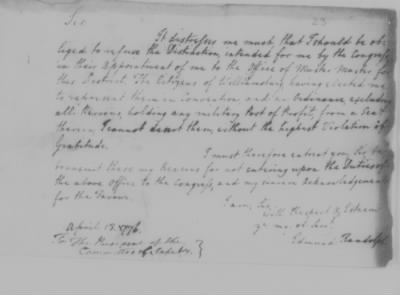 Sir 23
It distresses me much, that I should be ob-
liged to refuse the Distinction, intended for me by the Congress
in their Appointment of me to the Office of Muster Master for
this District. The Citizens of Williamsburg having elected me
to represent them in Convention, and an Ordinance, excluding
all Persons, holding any military Post of Profit, from a Seat
therein, I cannot desert them, without the highest Violation of
Gratitude.
I must therefore entreat you, Sir, to
transmit these my Reasons for not entering upon the Duties of
the above Office to the Congress, and my sincere Acknowledgements
for the Favour.
I am, Sir,
With Respect & Esteem
yr mo. ob. Serv.
Edmund Randolph
April 13. 1776.
To The President of the
Committee of